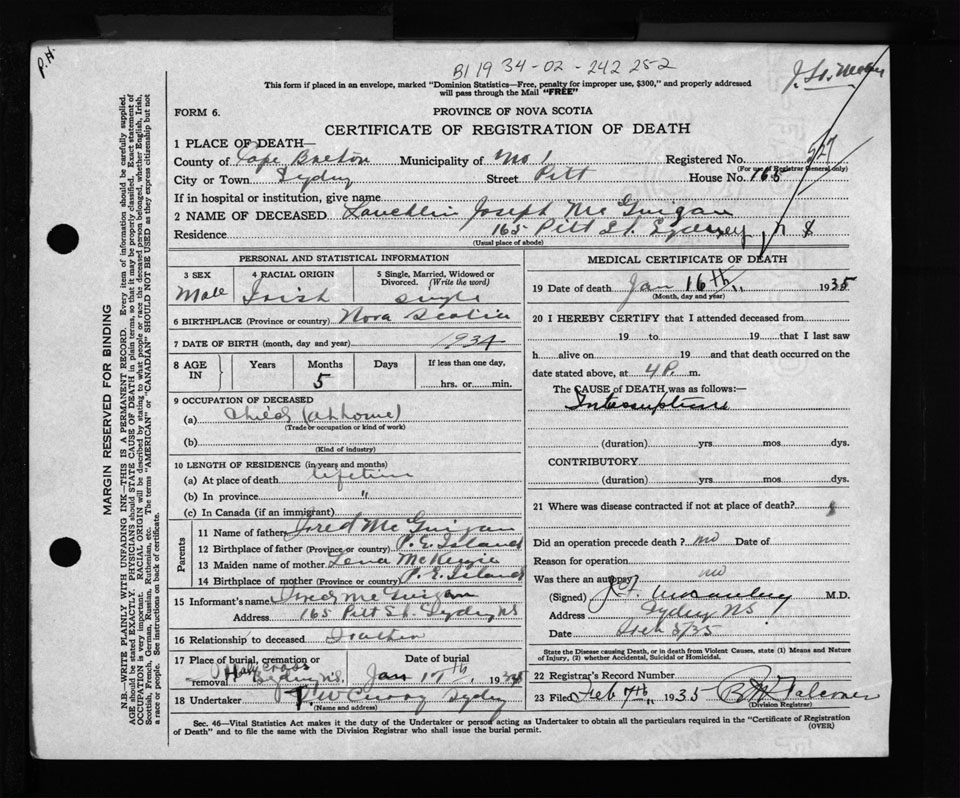 P.H.
B1 1934-02-242252
This form if placed in an envelope, marked "Dominion Statistics—Free, penalty for improper use, $300," and properly addressed
will pass through the Mail "FREE"
FORM 6.
PROVINCE OF NOVA SCOTIA
CERTIFICATE OF REGISTRATION OF DEATH
1 PLACE OF DEATH—
County of Cape Breton Municipality of No 1 Registered No. 527
(For use of Registrar General only)
City or Town Sydney Street Pitt House No. 165
If in hospital or institution, give name
2 NAME OF DECEASED Lauchlin Joseph McGuigan
Residence 165 Pitt St. Sydney, N S
(Usual place of abode)
PERSONAL AND STATISTICAL INFORMATION
3 SEX 4 RACIAL ORIGIN 5 Single, Married, Widowed or
Divorced. (Write the word)
Male Irish single
6 BIRTHPLACE (Province or country) Nova Scotia
7 DATE OF BIRTH (month, day and year) 1934
8 AGE IN Years Months Days If less than one day,
5 hrs. or min.
9 OCCUPATION OF DECEASED
(a) Child (at home)
(Trade or occupation or kind of work)
(b)
(Kind of industry)
10 LENGTH OF RESIDENCE (in years and months)
(a) At place of death lifetime
(b) In province "
(c) In Canada (if an immigrant)
Parents
11 Name of father McGuigan
12 Birthplace of father (Province or country) P. E. Island
13 Maiden name of mother Lena McKenzie
14 Birthplace of mother (Province or country) P. E. Island
15 Informant's name McGuigan
Address 165 Pitt St. Sydney NS
16 Relationship to deceased Father
17 Place of burial, cremation or Date of burial
removal Holy Cross Sydney N.S. Jan 1 th, 193
18 Undertaker Sydney
(Name and address)
MEDICAL CERTIFICATE OF DEATH
19 Date of death Jan 16th 1935
(Month, day and year)
20 I HEREBY CERTIFY that I attended deceased from
19 to 19 that I last saw
h alive on 19 and that death occurred on the
date stated above, at 4 P. m.
The CAUSE of DEATH was as follows:—
(duration) yrs mos dys.
CONTRIBUTORY
(duration) yrs mos dys.
21 Where was disease contracted if not at place of death?
Did an operation precede death? no Date of
Reason for operation
Was there an autopsy no
(Signed) M.D.
Address Sydney NS
Date
State the Disease causing Death, or in death from Violent Causes, state (1) Means and
Nature of Injury, (2) whether Accidental, Suicidal or Homicidal.
22 Registrar's Record Number
23 Filed Feb 7th, 1935
(Division Registrar)
Sec. 46—Vital Statistics Act makes it the duty of the Undertaker or person acting as Undertaker to obtain all the particulars required in the "Certificate of Registration
of Death" and to file the same with the Division Registrar who shall issue the burial permit. (OVER)
MARGIN RESERVED FOR BINDING
N.B.—WRITE PLAINLY WITH UNFADING INK—THIS IS A PERMANENT RECORD. Every item of information should be carefully supplied.
AGE should be stated EXACTLY. PHYSICIANS should STATE CAUSE OF DEATH in plain terms, so that it may be properly classified. Exact statement of
OCCUPATION is very important. RACIAL ORIGIN will be described by stating to what people or race the deceased person belonged, whether English, Irish,
Scottish, French, German, Russian, Ruthenian, etc. The terms "AMERICAN" or "CANADIAN" SHOULD NOT BE USED as they express citizenship but not
a race or people. See instructions on back of certificate.